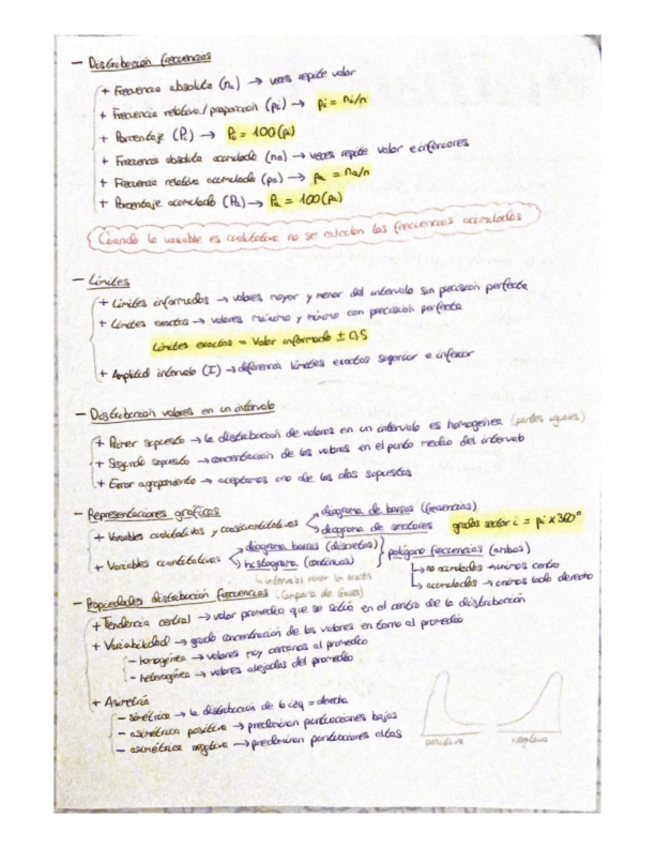 - Distribución frecuencias
+ Frecuencia absoluta (ni) → veces repite valor
+ Frecuencia relativa/proporción (pi) → pi = ni/n
+ Porcentaje (Pi) → Pi = 100(pi)
+ Frecuencia absoluta acumulada (na) → veces repite valor e inferiores
+ Frecuencia relativa acumulada (pa) → pa = na/n
+ Porcentaje acumulado (Pa) → Pa = 100(pa)
Cuando la variable es cualitativa no se calculan las frecuencias acumuladas
- Límites
+ Límites informados → valores mayor y menor del intervalo sin precisión perfecta
+ Límites exactos → valores máximo y mínimo con precisión perfecta
Límites exactos = Valor informado ± 0,5
+ Amplitud intervalo (I) → diferencia límites exactos superior e inferior
- Distribución valores en un intervalo
+ Primer supuesto → la distribución de valores en un intervalo es homogénea (partes iguales)
+ Segundo supuesto → concentración de los valores en el punto medio del intervalo
+ Error agrupamiento → aceptamos uno de los dos supuestos
- Representaciones gráficas
+ Variables cualitativas y cuasicuantitativas → diagrama de barras (frecuencias)
→ diagrama de sectores grados sector i = pi x 360°
+ Variables cuantitativas → diagrama barras (discretas)
→ histograma (continuas)
polígono frecuencias (ambos)
→ no acumuladas → unimos centro
→ acumuladas → unimos lado derecho
- Propiedades distribución frecuencias (Campana de Gauss)
+ Tendencia central → valor promedio que se sitúa en el centro de la distribución
+ Variabilidad → grado concentración de los valores en torno al promedio
- homogénea → valores muy cercanos al promedio
- heterogénea → valores alejados del promedio
+ Asimetría
- simétrica → la distribución de la izq = derecha
- asimétrica positiva → predominan puntuaciones bajas
- asimétrica negativa → predominan puntuaciones altas
positiva
negativa